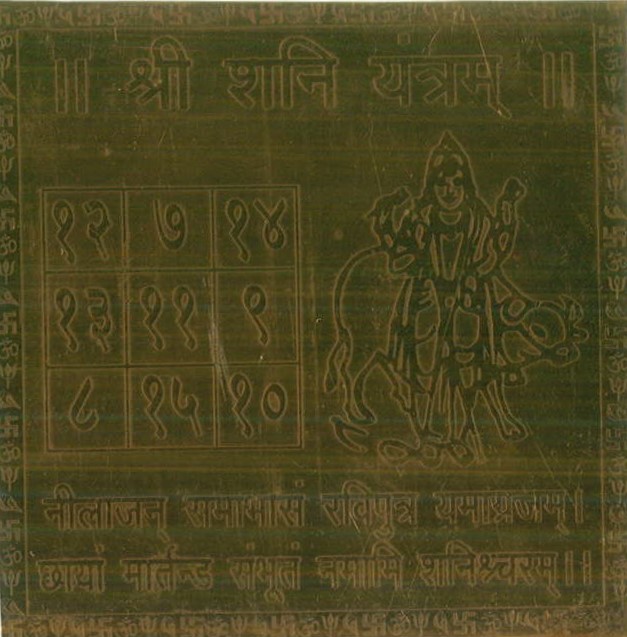 || श्री शनि यंत्रम् ||
१२ ७ १४
१३ ११ ९
८ १५ १०
नीलाजन् समाभासं रविपुत्र यमाग्रजम्।
छायां मार्तन्ड संभूतं नमामि शनिश्चरम्।।